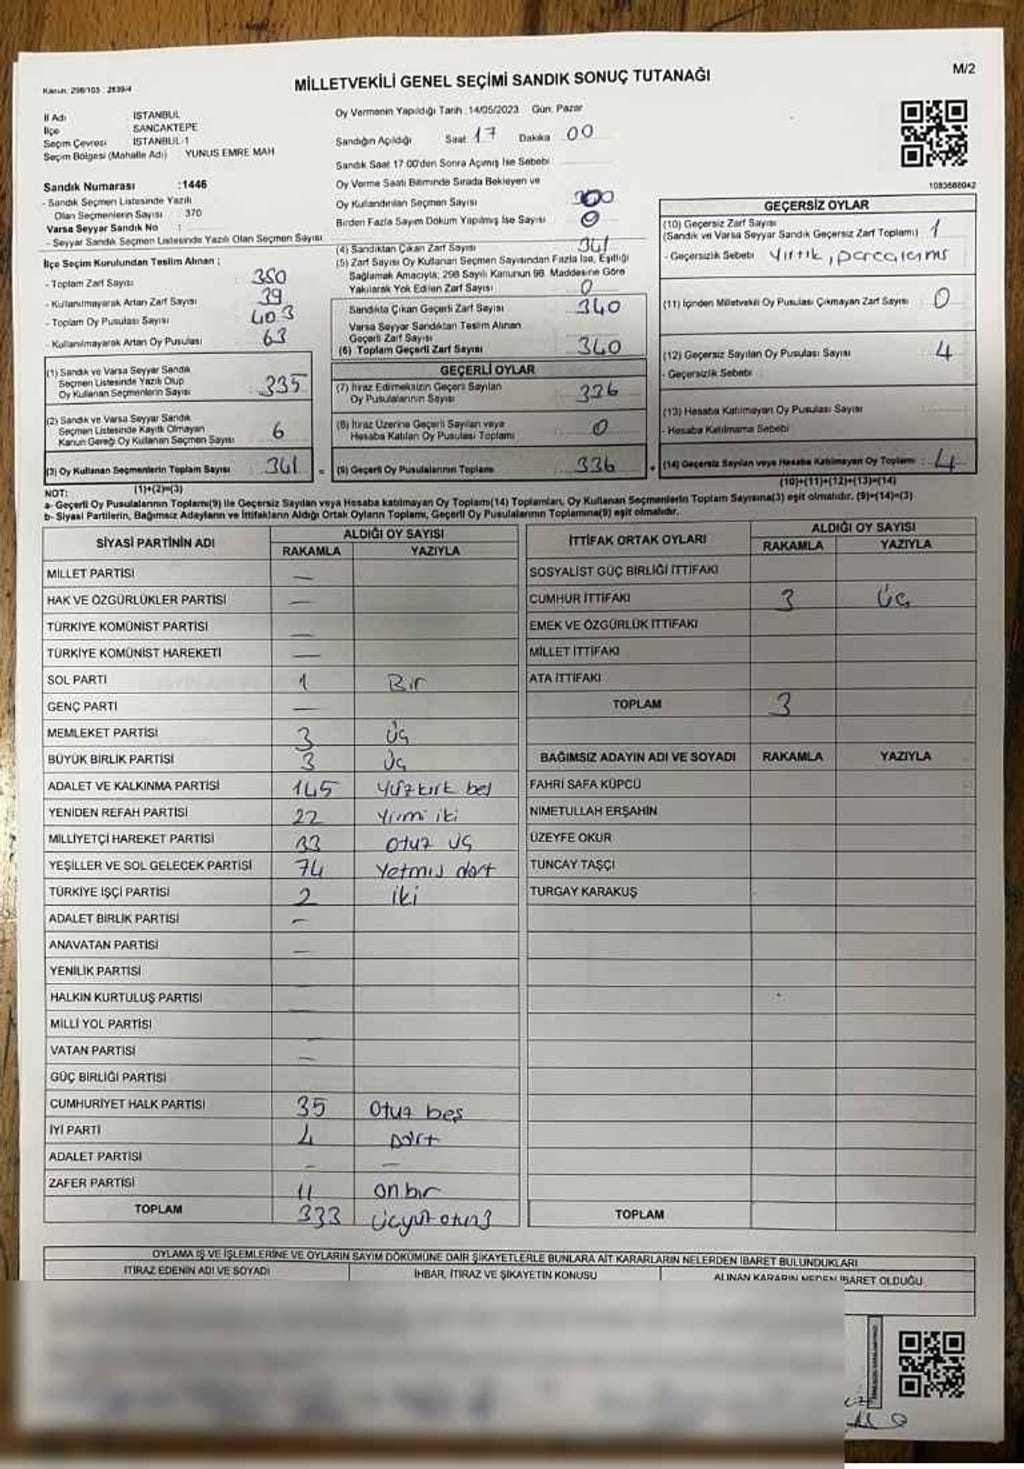 Kanun: 298/105 : 2839/4
MİLLETVEKİLİ GENEL SEÇİMİ SANDIK SONUÇ TUTANAĞI
M/2
İl Adı İSTANBUL
İlçe SANCAKTEPE
Seçim Çevresi İSTANBUL-1
Seçim Bölgesi (Mahalle Adı) YUNUS EMRE MAH
Sandık Numarası :1446
- Sandık Seçmen Listesinde Yazılı
Olan Seçmenlerin Sayısı : 370
Varsa Seyyar Sandık No :
- Seyyar Sandık Seçmen Listesinde Yazılı Olan Seçmen Sayısı
İlçe Seçim Kurulundan Teslim Alınan ;
- Toplam Zarf Sayısı 380
- Kullanılmayarak Artan Zarf Sayısı 39
- Toplam Oy Pusulası Sayısı 403
- Kullanılmayarak Artan Oy Pusulası 63
(1) Sandık ve Varsa Seyyar Sandık
Seçmen Listesinde Yazılı Olup
Oy Kullanan Seçmenlerin Sayısı 335
(2) Sandık ve Varsa Seyyar Sandık
Seçmen Listesinde Kayıtlı Olmayan
Kanun Gereği Oy Kullanan Seçmen Sayısı 6
(3) Oy Kullanan Seçmenlerin Toplam Sayısı 341 =
(1)+(2)=(3)
Oy Vermenin Yapıldığı Tarih : 14/05/2023 Gün: Pazar
Sandığın Açıldığı Saat 17 Dakika 00
Sandık Saat 17:00'den Sonra Açımış İse Sebebi
Oy Verme Saati Bitiminde Sırada Bekleyen ve
Oy Kullandırılan Seçmen Sayısı
Birden Fazla Sayım Döküm Yapılmış İse Sayısı 0
(4) Sandıktan Çıkan Zarf Sayısı 341
(5) Zarf Sayısı Oy Kullanan Seçmen Sayısından Fazla İse, Eşitliği
Sağlamak Amacıyla; 298 Sayılı Kanunun 98. Maddesine Göre
Yakılarak Yok Edilen Zarf Sayısı 0
Sandıkta Çıkan Geçerli Zarf Sayısı 340
Varsa Seyyar Sandıktan Teslim Alınan
Geçerli Zarf Sayısı
(6) Toplam Geçerli Zarf Sayısı 340
GEÇERLİ OYLAR
(7) İtiraz Edilmeksizin Geçerli Sayılan
Oy Pusulalarının Sayısı 336
(8) İtiraz Üzerine Geçerli Sayılan veya
Hesaba Katılan Oy Pusulası Toplamı 0
(9) Geçerli Oy Pusulalarının Toplamı 336 +
1083668042
GEÇERSİZ OYLAR
(10) Geçersiz Zarf Sayısı 1
(Sandık ve Varsa Seyyar Sandık Geçersiz Zarf Toplamı)
- Geçersizlik Sebebi yırtık, parçalanmış
(11) İçinden Milletvekili Oy Pusulası Çıkmayan Zarf Sayısı 0
(12) Geçersiz Sayılan Oy Pusulası Sayısı 4
- Geçersizlik Sebebi
(13) Hesaba Katılmayan Oy Pusulası Sayısı
- Hesaba Katılmama Sebebi
(14) Geçersiz Sayılan veya Hesaba Katılmayan Oy Toplamı : 4
(10)+(11)+(12)+(13)=(14)
NOT:
a- Geçerli Oy Pusulalarının Toplamı(9) ile Geçersiz Sayılan veya Hesaba katılmayan Oy Toplamı(14) Toplamları, Oy Kullanan Seçmenlerin Toplam Sayısına(3) eşit olmalıdır. (9)+(14)=(3)
b- Siyasi Partilerin, Bağımsız Adayların ve İttifakların Aldığı Ortak Oyların Toplamı, Geçerli Oy Pusulalarının Toplamına(9) eşit olmalıdır.
SİYASİ PARTİNİN ADI ALDIĞI OY SAYISI
RAKAMLA YAZIYLA
MİLLET PARTİSİ —
HAK VE ÖZGÜRLÜKLER PARTİSİ —
TÜRKİYE KOMÜNİST PARTİSİ —
TÜRKİYE KOMÜNİST HAREKETİ —
SOL PARTİ 1 Bir
GENÇ PARTİ —
MEMLEKET PARTİSİ 3 Üç
BÜYÜK BİRLİK PARTİSİ 3 Üç
ADALET VE KALKINMA PARTİSİ 145 Yüzkırk beş
YENİDEN REFAH PARTİSİ 22 Yirmi iki
MİLLİYETÇİ HAREKET PARTİSİ 33 otuz üç
YEŞİLLER VE SOL GELECEK PARTİSİ 74 Yetmiş dört
TÜRKİYE İŞÇİ PARTİSİ 2 iki
ADALET BİRLİK PARTİSİ —
ANAVATAN PARTİSİ —
YENİLİK PARTİSİ
HALKIN KURTULUŞ PARTİSİ —
MİLLİ YOL PARTİSİ
VATAN PARTİSİ —
GÜÇ BİRLİĞİ PARTİSİ
CUMHURİYET HALK PARTİSİ 35 Otuz beş
İYİ PARTİ 4 Dört
ADALET PARTİSİ — —
ZAFER PARTİSİ 11 On bir
TOPLAM 333 Üçyüz otuz3
İTTİFAK ORTAK OYLARI ALDIĞI OY SAYISI
RAKAMLA YAZIYLA
SOSYALİST GÜÇ BİRLİĞİ İTTİFAKI
CUMHUR İTTİFAKI 3 Üç
EMEK VE ÖZGÜRLÜK İTTİFAKI
MİLLET İTTİFAKI
ATA İTTİFAKI
TOPLAM 3
BAĞIMSIZ ADAYIN ADI VE SOYADI RAKAMLA YAZIYLA
FAHRİ SAFA KÜPCÜ
NİMETULLAH ERŞAHİN
ÜZEYFE OKUR
TUNCAY TAŞÇI
TURGAY KARAKUŞ
TOPLAM
OYLAMA İŞ VE İŞLEMLERİNE VE OYLARIN SAYIM DÖKÜMÜNE DAİR ŞİKAYETLERLE BUNLARA AİT KARARLARIN NELERDEN İBARET BULUNDUKLARI
İTİRAZ EDENİN ADI VE SOYADI İHBAR, İTİRAZ VE ŞİKAYETİN KONUSU ALINAN KARARIN NEDEN İBARET OLDUĞU